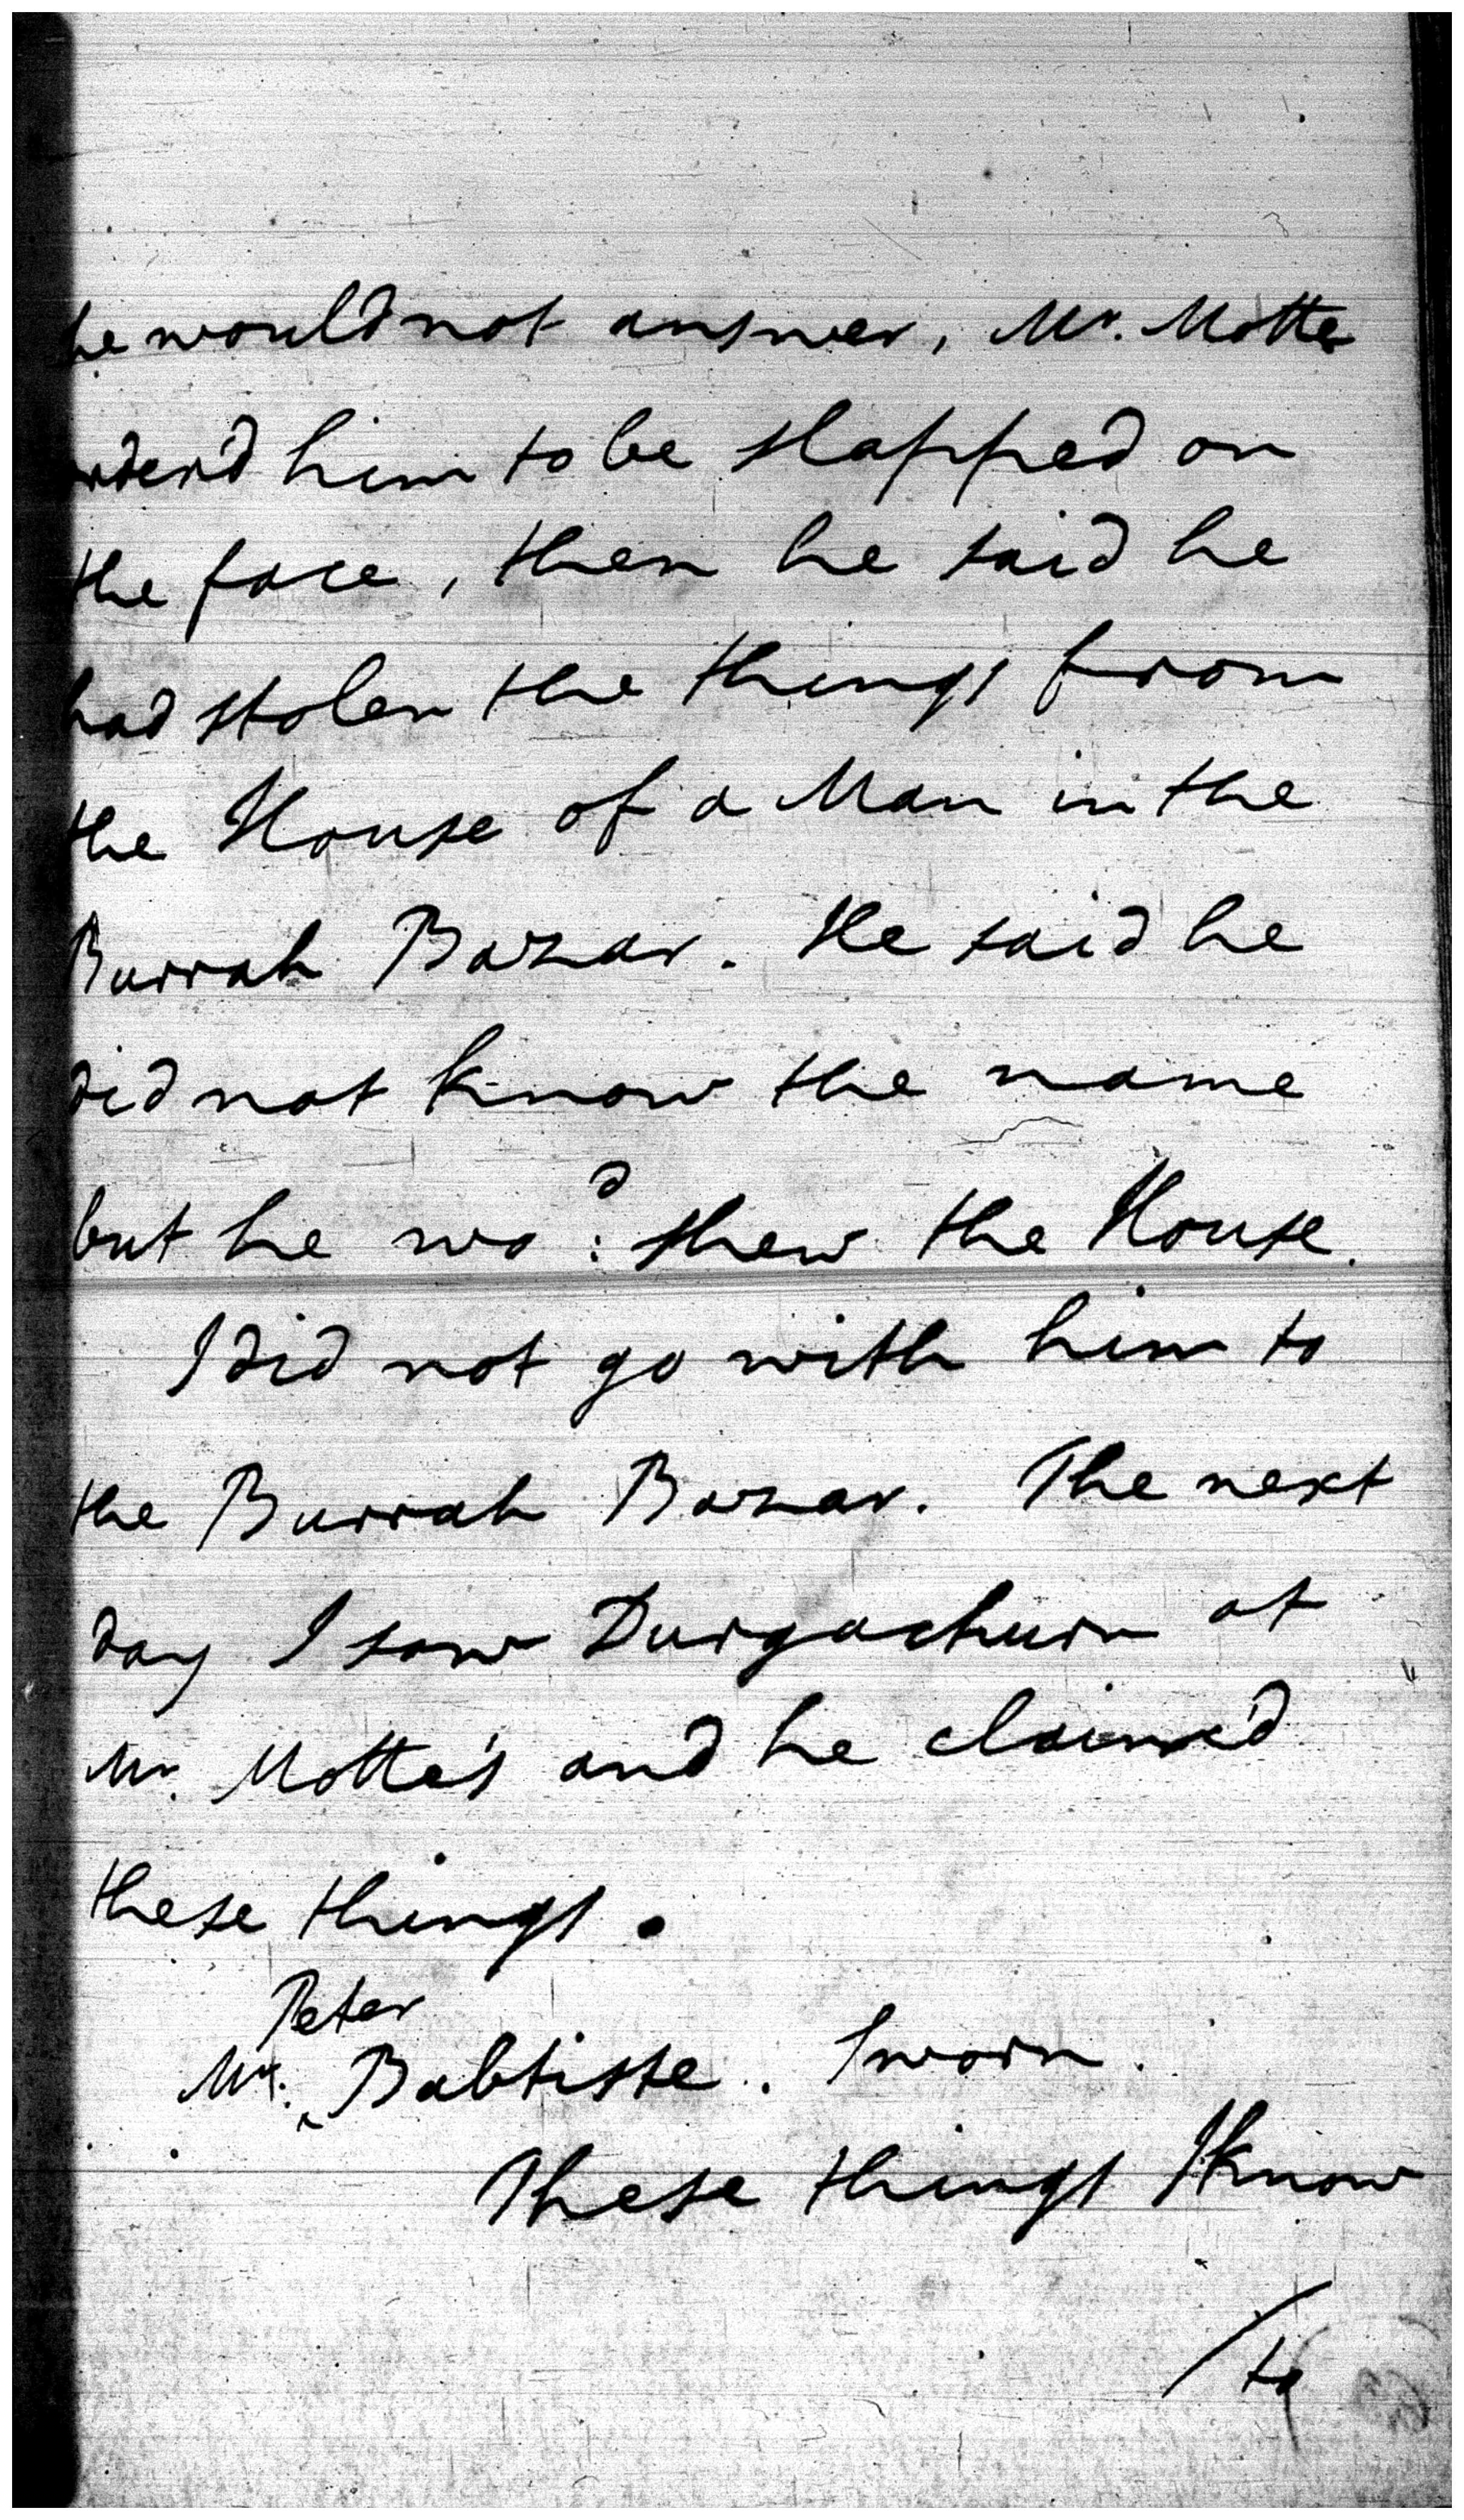 he would not answer, Mr. Motte
order'd him to be slapped on
the face, then he said he
had stolen the things from
the House of a Man in the
Burrah Bazar. He said he
did not know the name
but he wo:d shew the House.
I did not go with him to
the Burrah Bazar. The next
day I saw Durgachurn at
Mr. Motte's and he claim'd
these things.
Peter
Mr. ‸ Babtiste. Sworn.
These things I know
/to